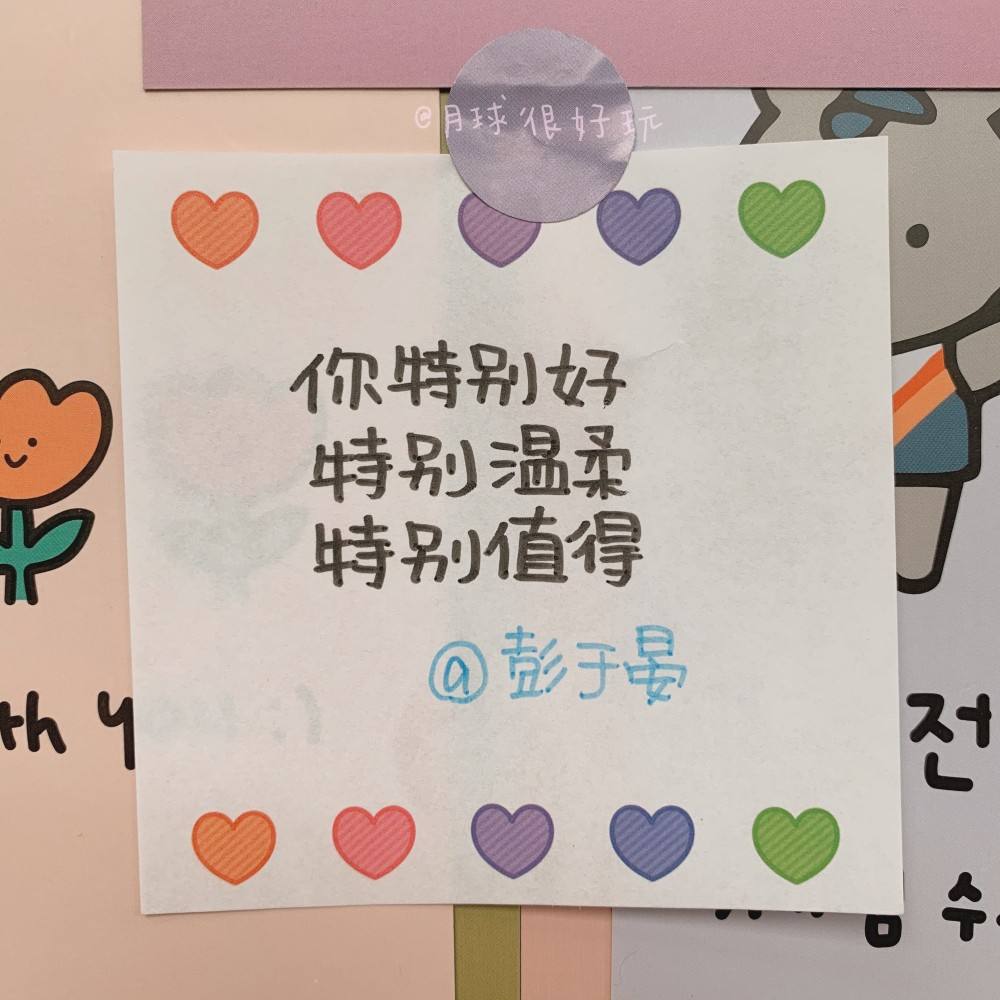 @月球很好玩
你特别好
特别温柔
特别值得
@彭于晏
th
전